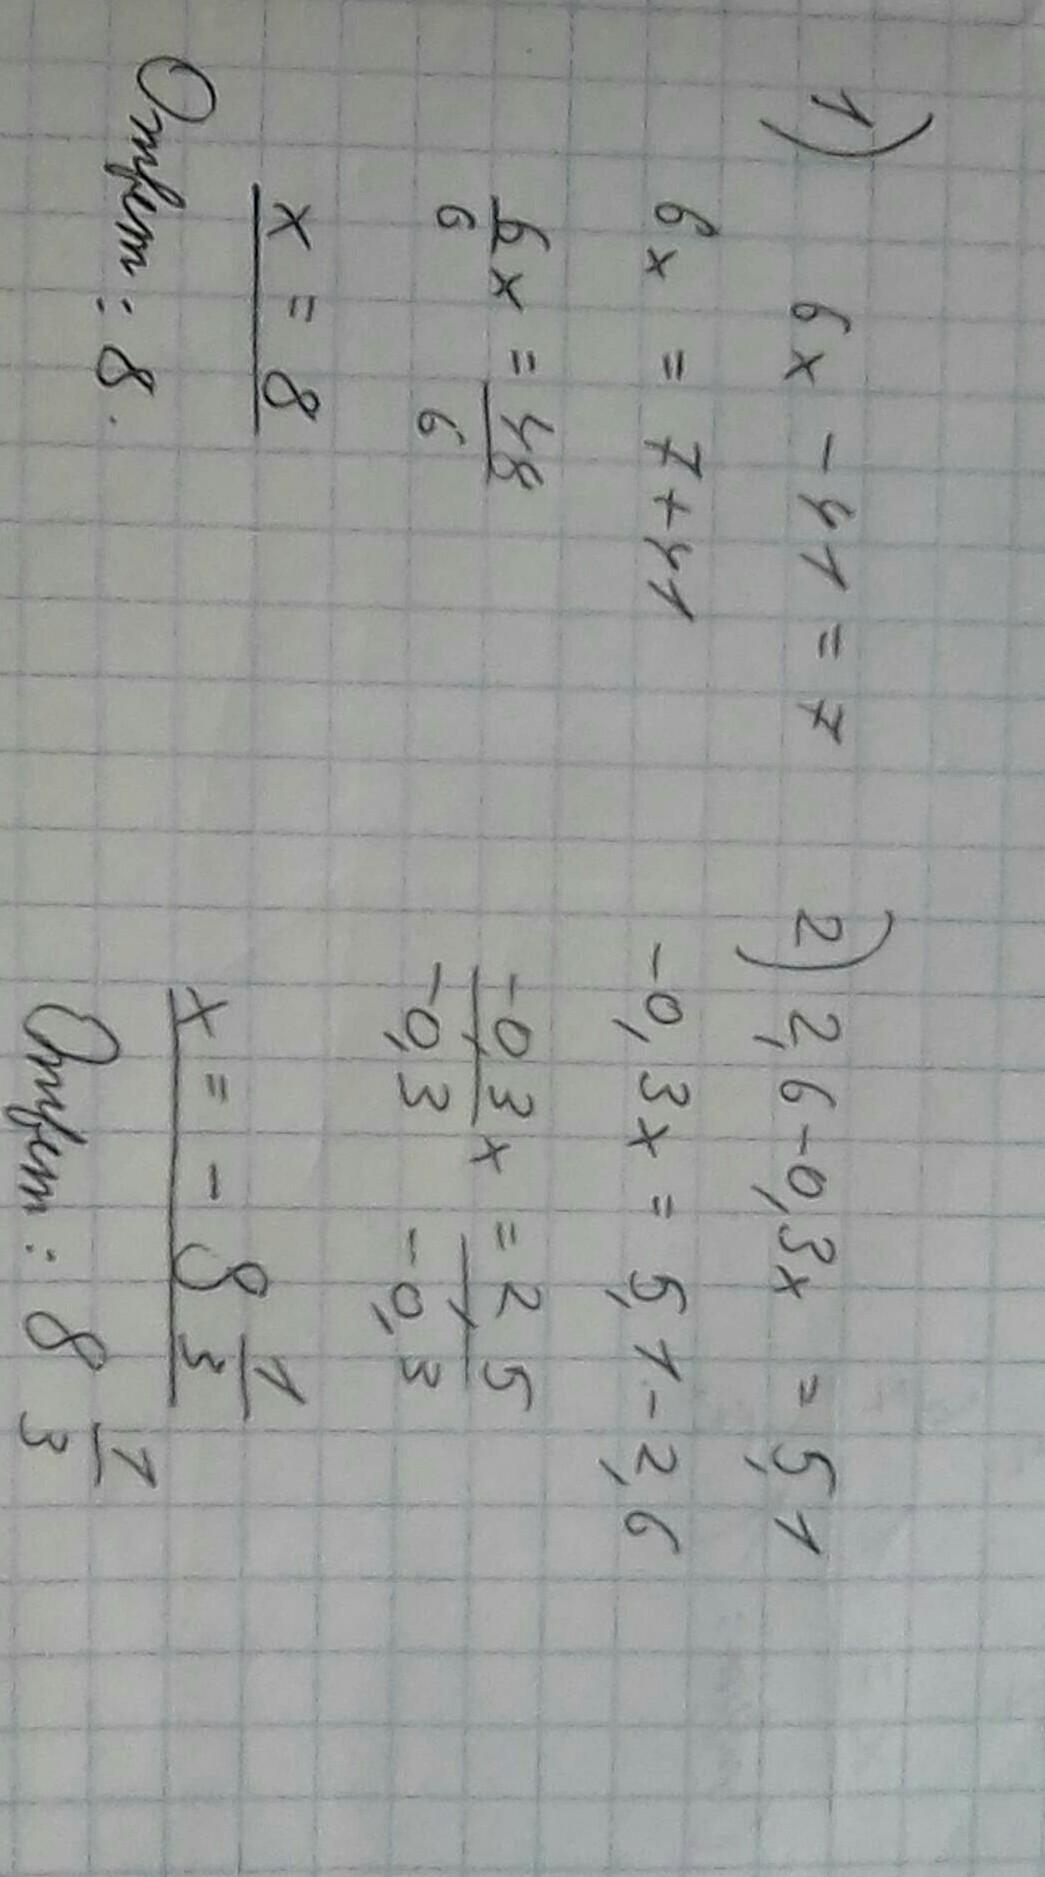 1) 6x - 41 = 7
6x = 7+41
6/6 x = 48/6
x = 8
Ответ: 8.
2) 2,6 - 0,3x = 5,1
-0,3x = 5,1 - 2,6
-0,3/-0,3 x = 2,5/-0,3
x = - 8 1/3
Ответ: 8 1/3